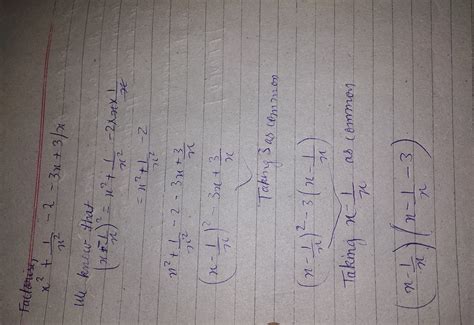 Factorise,
x² + 1/x² - 2 - 3x + 3/x
We know that
(x - 1/x)² = x² + 1/x² - 2 × x × 1/x
= x² + 1/x² - 2
x² + 1/x² - 2 - 3x + 3/x
(x - 1/x)² - 3x + 3/x
Taking 3 as common
(x - 1/x)² - 3(x - 1/x)
Taking x - 1/x as common
(x - 1/x)(x - 1/x - 3)